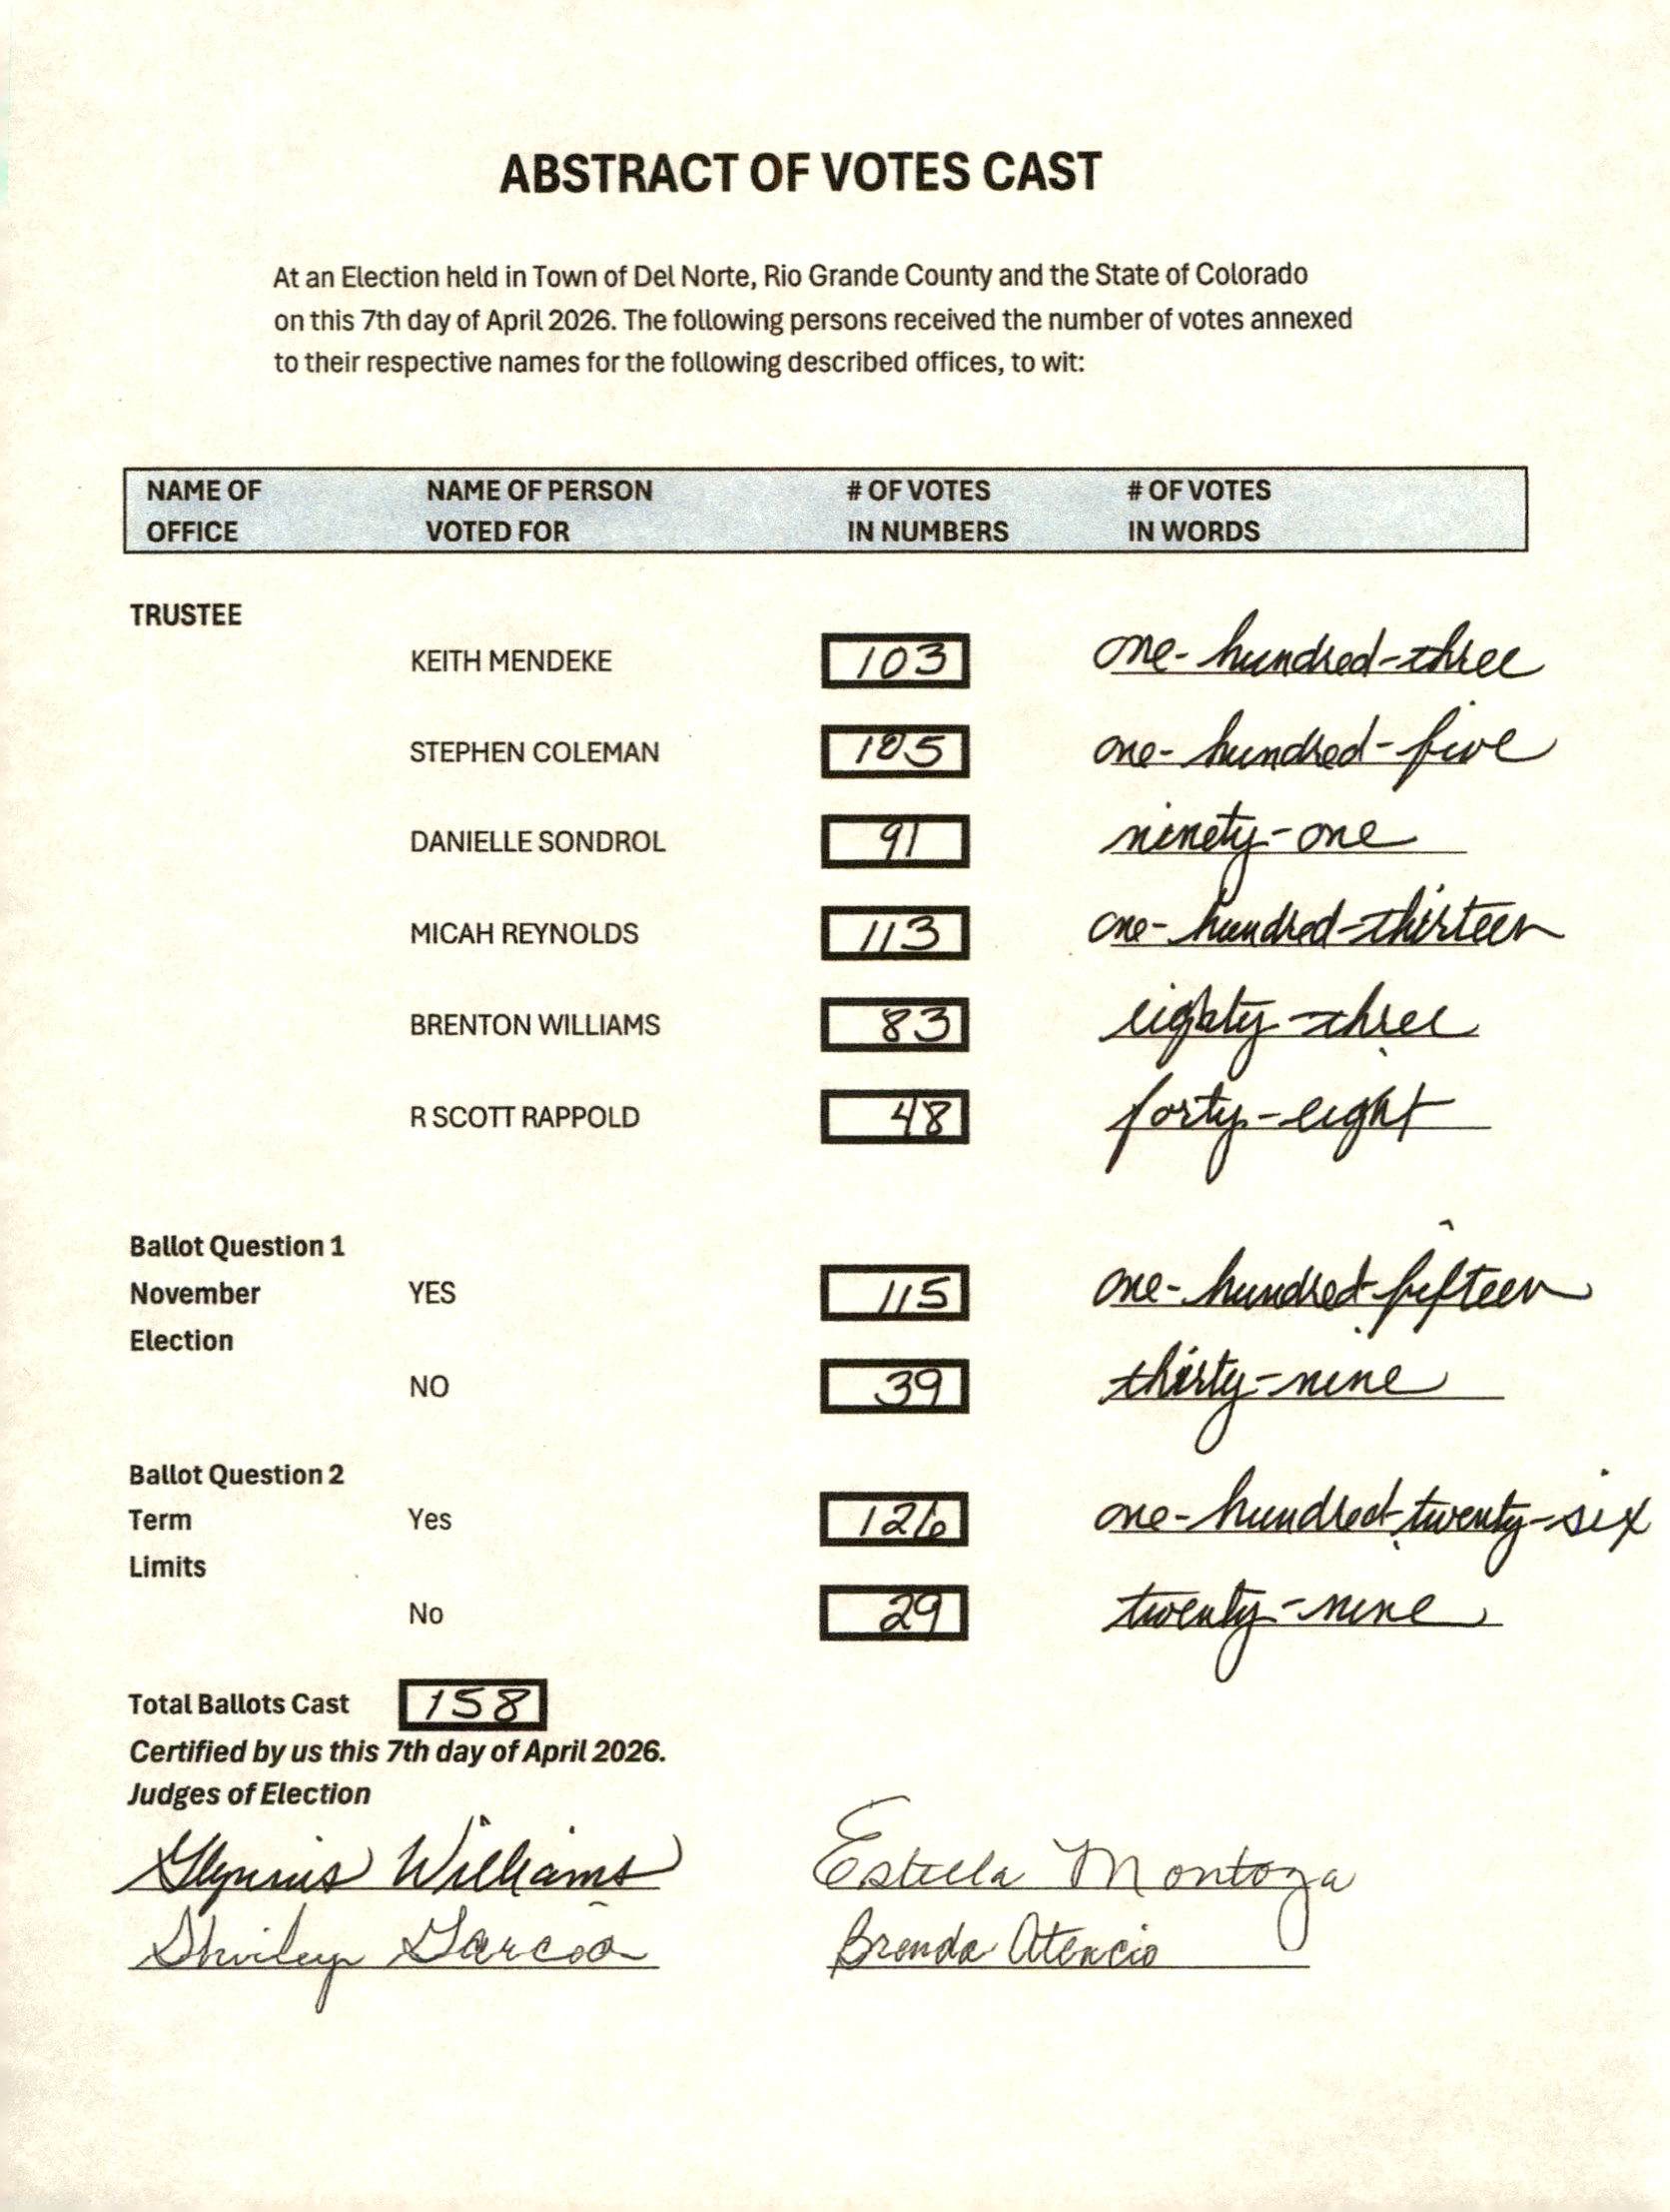 ABSTRACT OF VOTES CAST
At an Election held in Town of Del Norte, Rio Grande County and the State of Colorado
on this 7th day of April 2026. The following persons received the number of votes annexed
to their respective names for the following described offices, to wit:
NAME OF NAME OF PERSON # OF VOTES # OF VOTES
OFFICE VOTED FOR IN NUMBERS IN WORDS
TRUSTEE
KEITH MENDEKE 103 one-hundred-three
STEPHEN COLEMAN 105 one-hundred-five
DANIELLE SONDROL 91 ninety-one
MICAH REYNOLDS 113 one-hundred-thirteen
BRENTON WILLIAMS 83 eighty-three
R SCOTT RAPPOLD 48 forty-eight
Ballot Question 1
November YES 115 one-hundred-fifteen
Election
NO 39 thirty-nine
Ballot Question 2
Term Yes 126 one-hundred-twenty-six
Limits
No 29 twenty-nine
Total Ballots Cast 158
Certified by us this 7th day of April 2026.
Judges of Election
Glynnis Williams Estella Montoya
Shirley Garcia Brenda Atencio